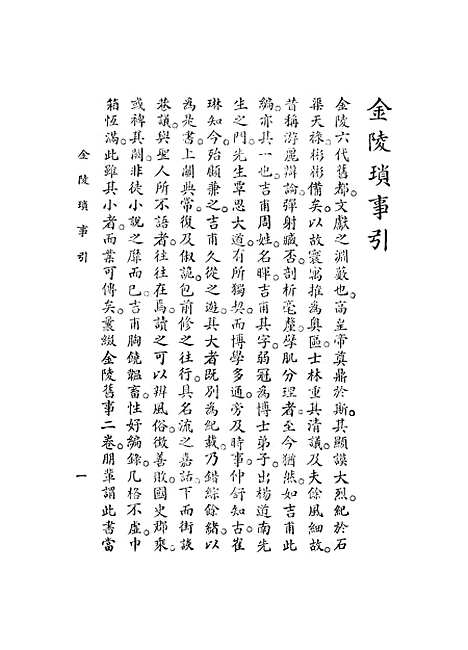 金陵瑣事引
金陵六代舊都。文獻之淵藪也。高皇帝奠鼎於斯。其顯謨大烈。紀於石
渠天祿。彬彬備矣。以故寰寓推為奧區。士林重其清議。及夫餘風細故。
昔稱游麗辯論。彈射臧否。剖析毫釐。擘肌分理者。至今猶然。如吉甫此
編。亦其一也。吉甫周姓。名暉。吉甫其字。弱冠為博士弟子。出楊道南先
生之門。先生覃思大道。有所獨契。而博學多通。旁及時事。仲舒知古。崔
琳知今。殆頗兼之。吉甫久從之遊。具大者既別為紀載。乃錯綜餘緒。以
為是書。上關典常。復及俶詭。包前修之往行。具名流之嘉話。下而街談
巷議。與聖人所不語者。往往在焉。讀之可以辨風俗。徵善敗。國史郡乘。
或裨其闕。非徒小說之靡而已。吉甫胸饒韞畜。性好編錄。几格不虛。巾
箱恆滿。此雖具小者。而業可傳矣。叢綴金陵舊事二卷。朋輩謂此書當
金陵瑣事引
一